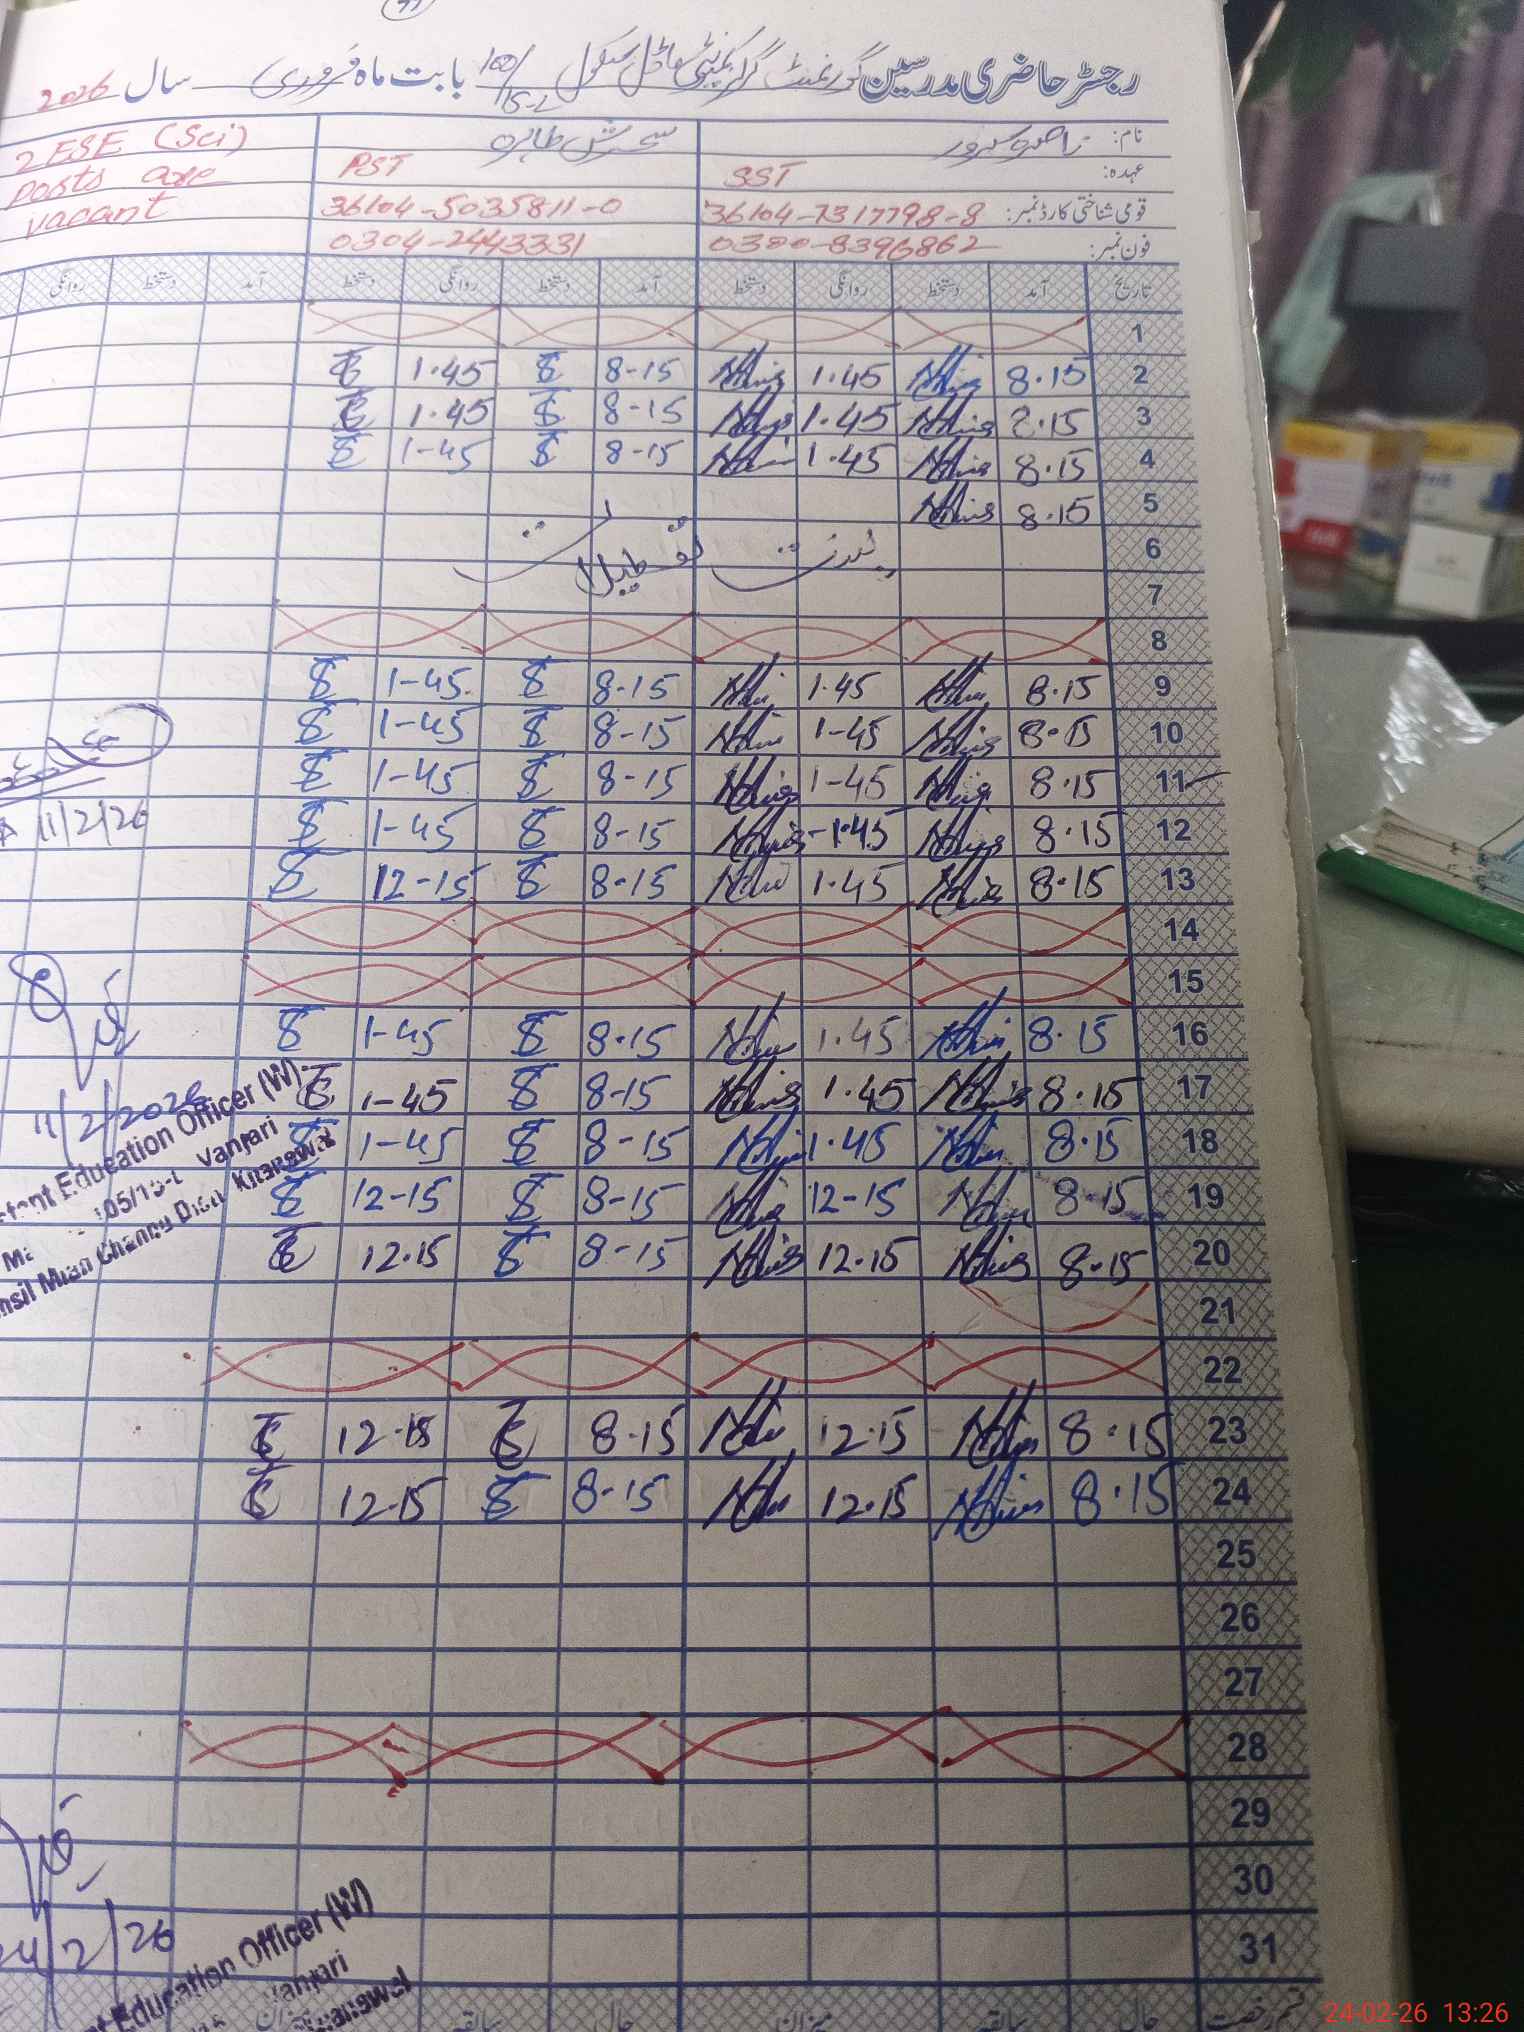 رجسٹر حاضری مدرسین گورنمنٹ گرلز کمیونٹی ماڈل سکول 100/15-L بابت ماہ فروری سال 2026
نام:
عہدہ: SST PST 2 ESE (Sci)
posts are
vacant
قومی شناختی کارڈ نمبر: 36104-7317798-8 36104-5035811-0
فون نمبر: 0300-8396862 0304-2443331
تاریخ آمد دستخط روانگی دستخط آمد دستخط روانگی دستخط آمد دستخط روانگی
1
2 8.15 1.45 8-15 1.45
3 8.15 1.45 8-15 1.45
4 8.15 1.45 8-15 1-45
5 8.15
6 تعطیلات
7
8
9 8.15 1.45 8-15 1-45
10 8.15 1-45 8-15 1-45
11 8.15 1-45 8-15 1-45
12 8.15 1.45 8-15 1-45
11/2/26
13 8.15 1.45 8-15 12-15
14
15
16 8.15 1.45 8.15 1-45
17 8.15 1.45 8-15 1-45
11/2/2026
18 8.15 1.45 8-15 1-45
Education Officer (W)
Vanjari
19 8.15 12-15 8-15 12-15
Mian Channu Distt Khanewal
20 8.15 12.15 8-15 12.15
21
22
23 8.15 12.15 8.15 12.15
24 8.15 12.15 8-15 12-15
25
26
27
28
29
30
31
24/2/26
Education Officer (W)
Vanjari
حال سابقہ میزان حال سابقہ میزان
24-02-26 13:26